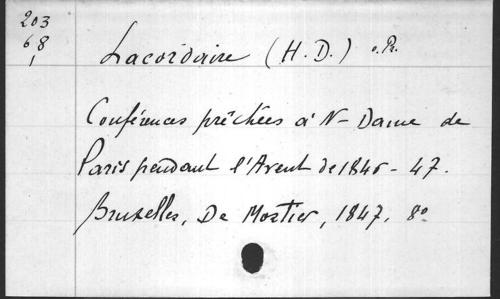 203
68
1
Lacordaire (H. D.) o. Pr.
Conférences prêchées à N-Dame de
Paris pendant l'Avent de 1846-47.
Bruxelles, De Mortier, 1847, 8º